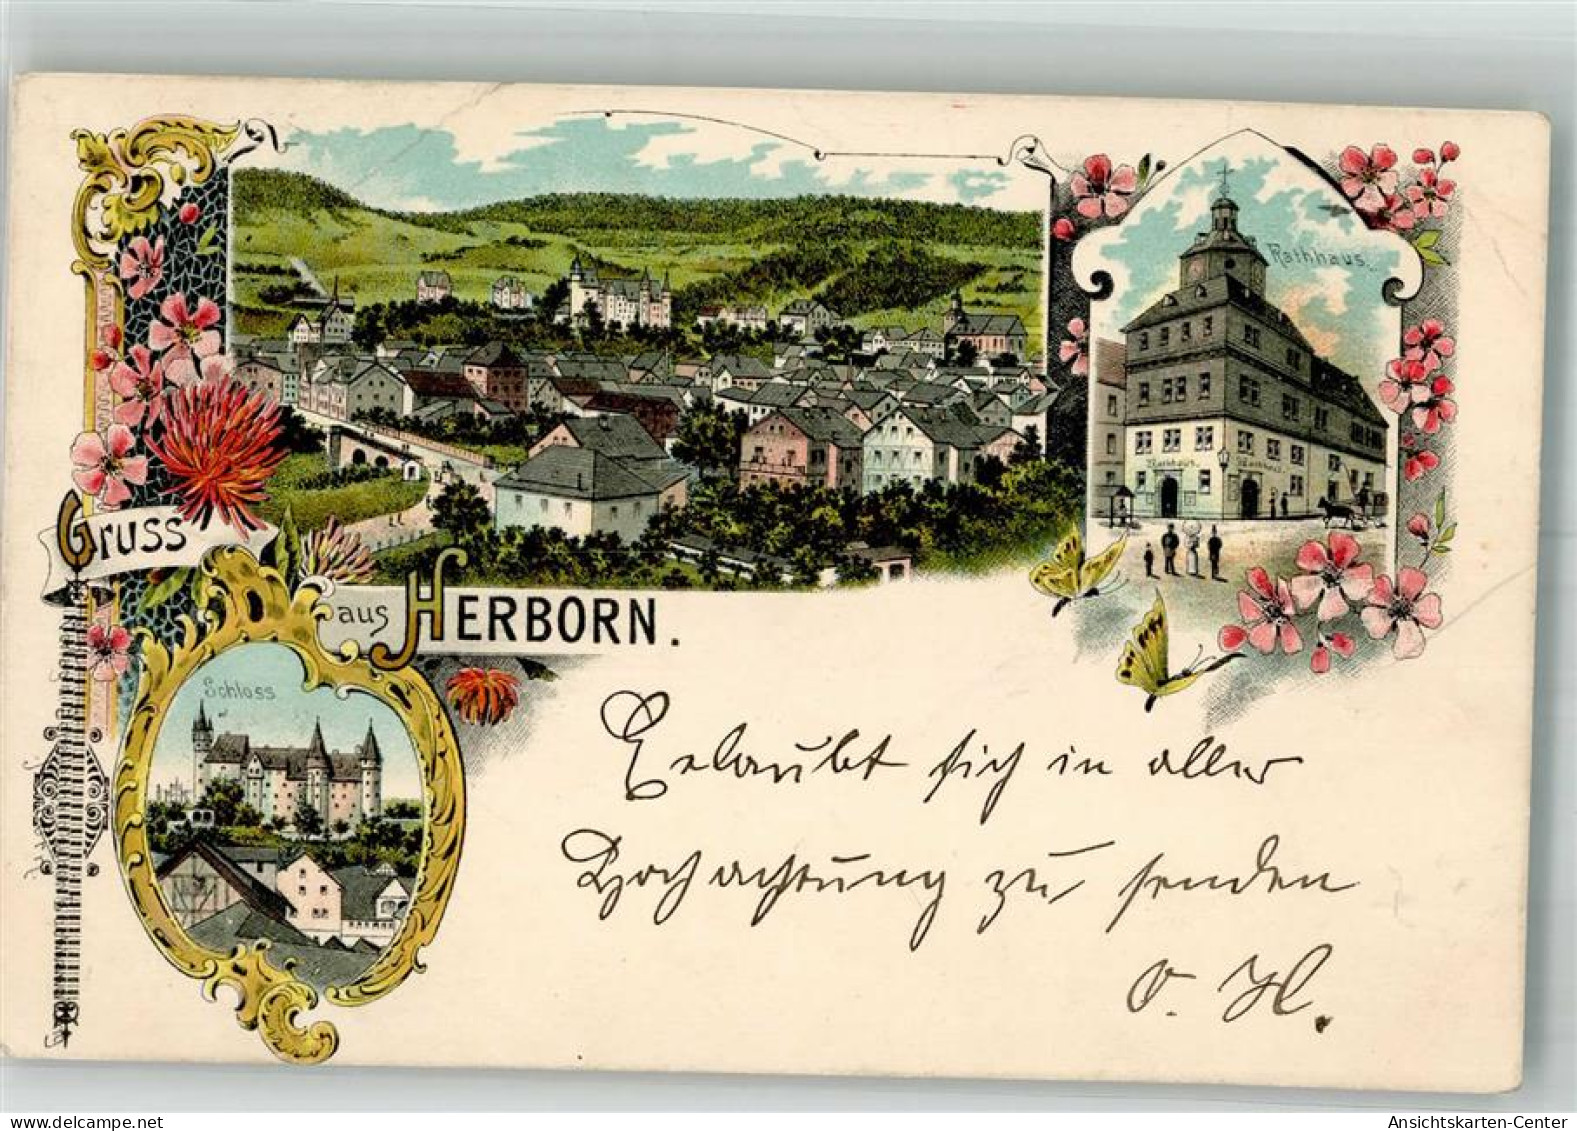 Rathhaus.
Gruss
aus HERBORN.
Schloss
Erlaubt sich in aller
Hochachtung zu senden
O. H.
delcampe.net
Ansichtskarten-Center